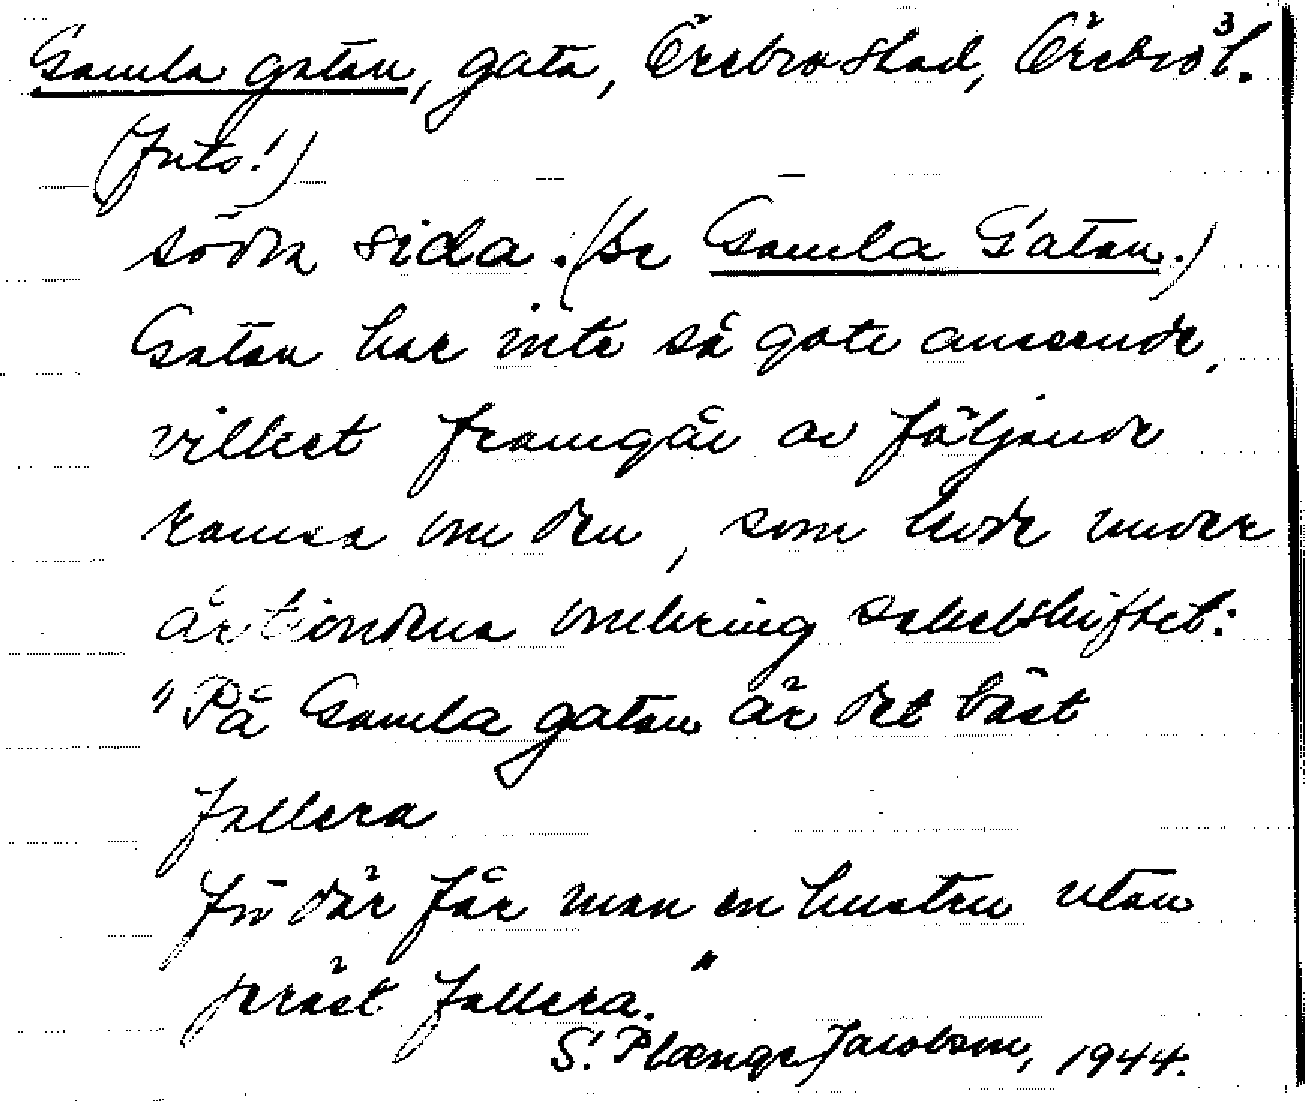 Gamla gatan, gata, Örebro stad, Örebro l. 3
(Forts.!)
södra sida. (Se Gamla Gatan.)
Gatan har inte så gott anseende,
vilket framgår av följande
ramsa om den, som levde under
årtiondena omkring sekelskiftet:
"På Gamla gatan är det bäst
fallera
för där får man en hustru utan
präst fallera."
S. Plænge Jacobson, 1944.